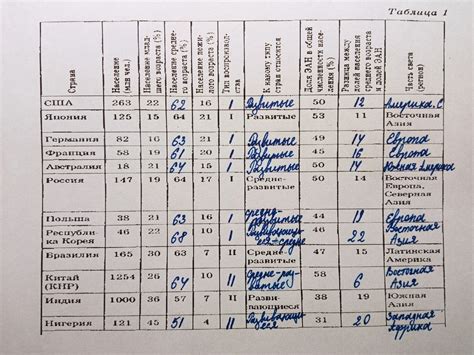 Таблица 1
Страна
Население (млн чел.)
Население младшего возраста (%)
Население среднего возраста (%)
Население пожилого возраста (%)
Тип воспроизводства
К какому типу стран относится
Доля ЭАН в общей численности населения (%)
Разница между долей населения среднего возраста и долей ЭАН
Часть света (регион)
США 263 22 62 16 I Развитые 50 12 Америка. С
Япония 125 15 64 21 I Развитые 53 11 Восточная
Азия
Германия 82 16 63 21 I Развитые 49 14 Европа
Франция 58 19 61 20 I Развитые 45 16 Европа
Австралия 18 21 64 15 I Развитые 50 14
Россия 147 19 64 17 I Средне- 50 14 Восточная
развитые Европа,
Северная
Азия
Польша 38 21 63 16 I средне- 44 19 Европа
развитые
Республи- 46 22 68 10 I Развивающи- 22 Восточ.
ка Корея еся-средне Азия
Бразилия 165 30 63 7 II Средне- 47 15 Латинская
развитые Америка
Китай 1254 26 64 10 II Средне-раз- 58 6 Восточная
(КНР) витые Азия
Индия 1000 36 57 7 II Разви- 38 19 Южная
вающиеся Азия
Нигерия 121 45 51 4 II Развивающи- 31 20 Западная
еся Африка